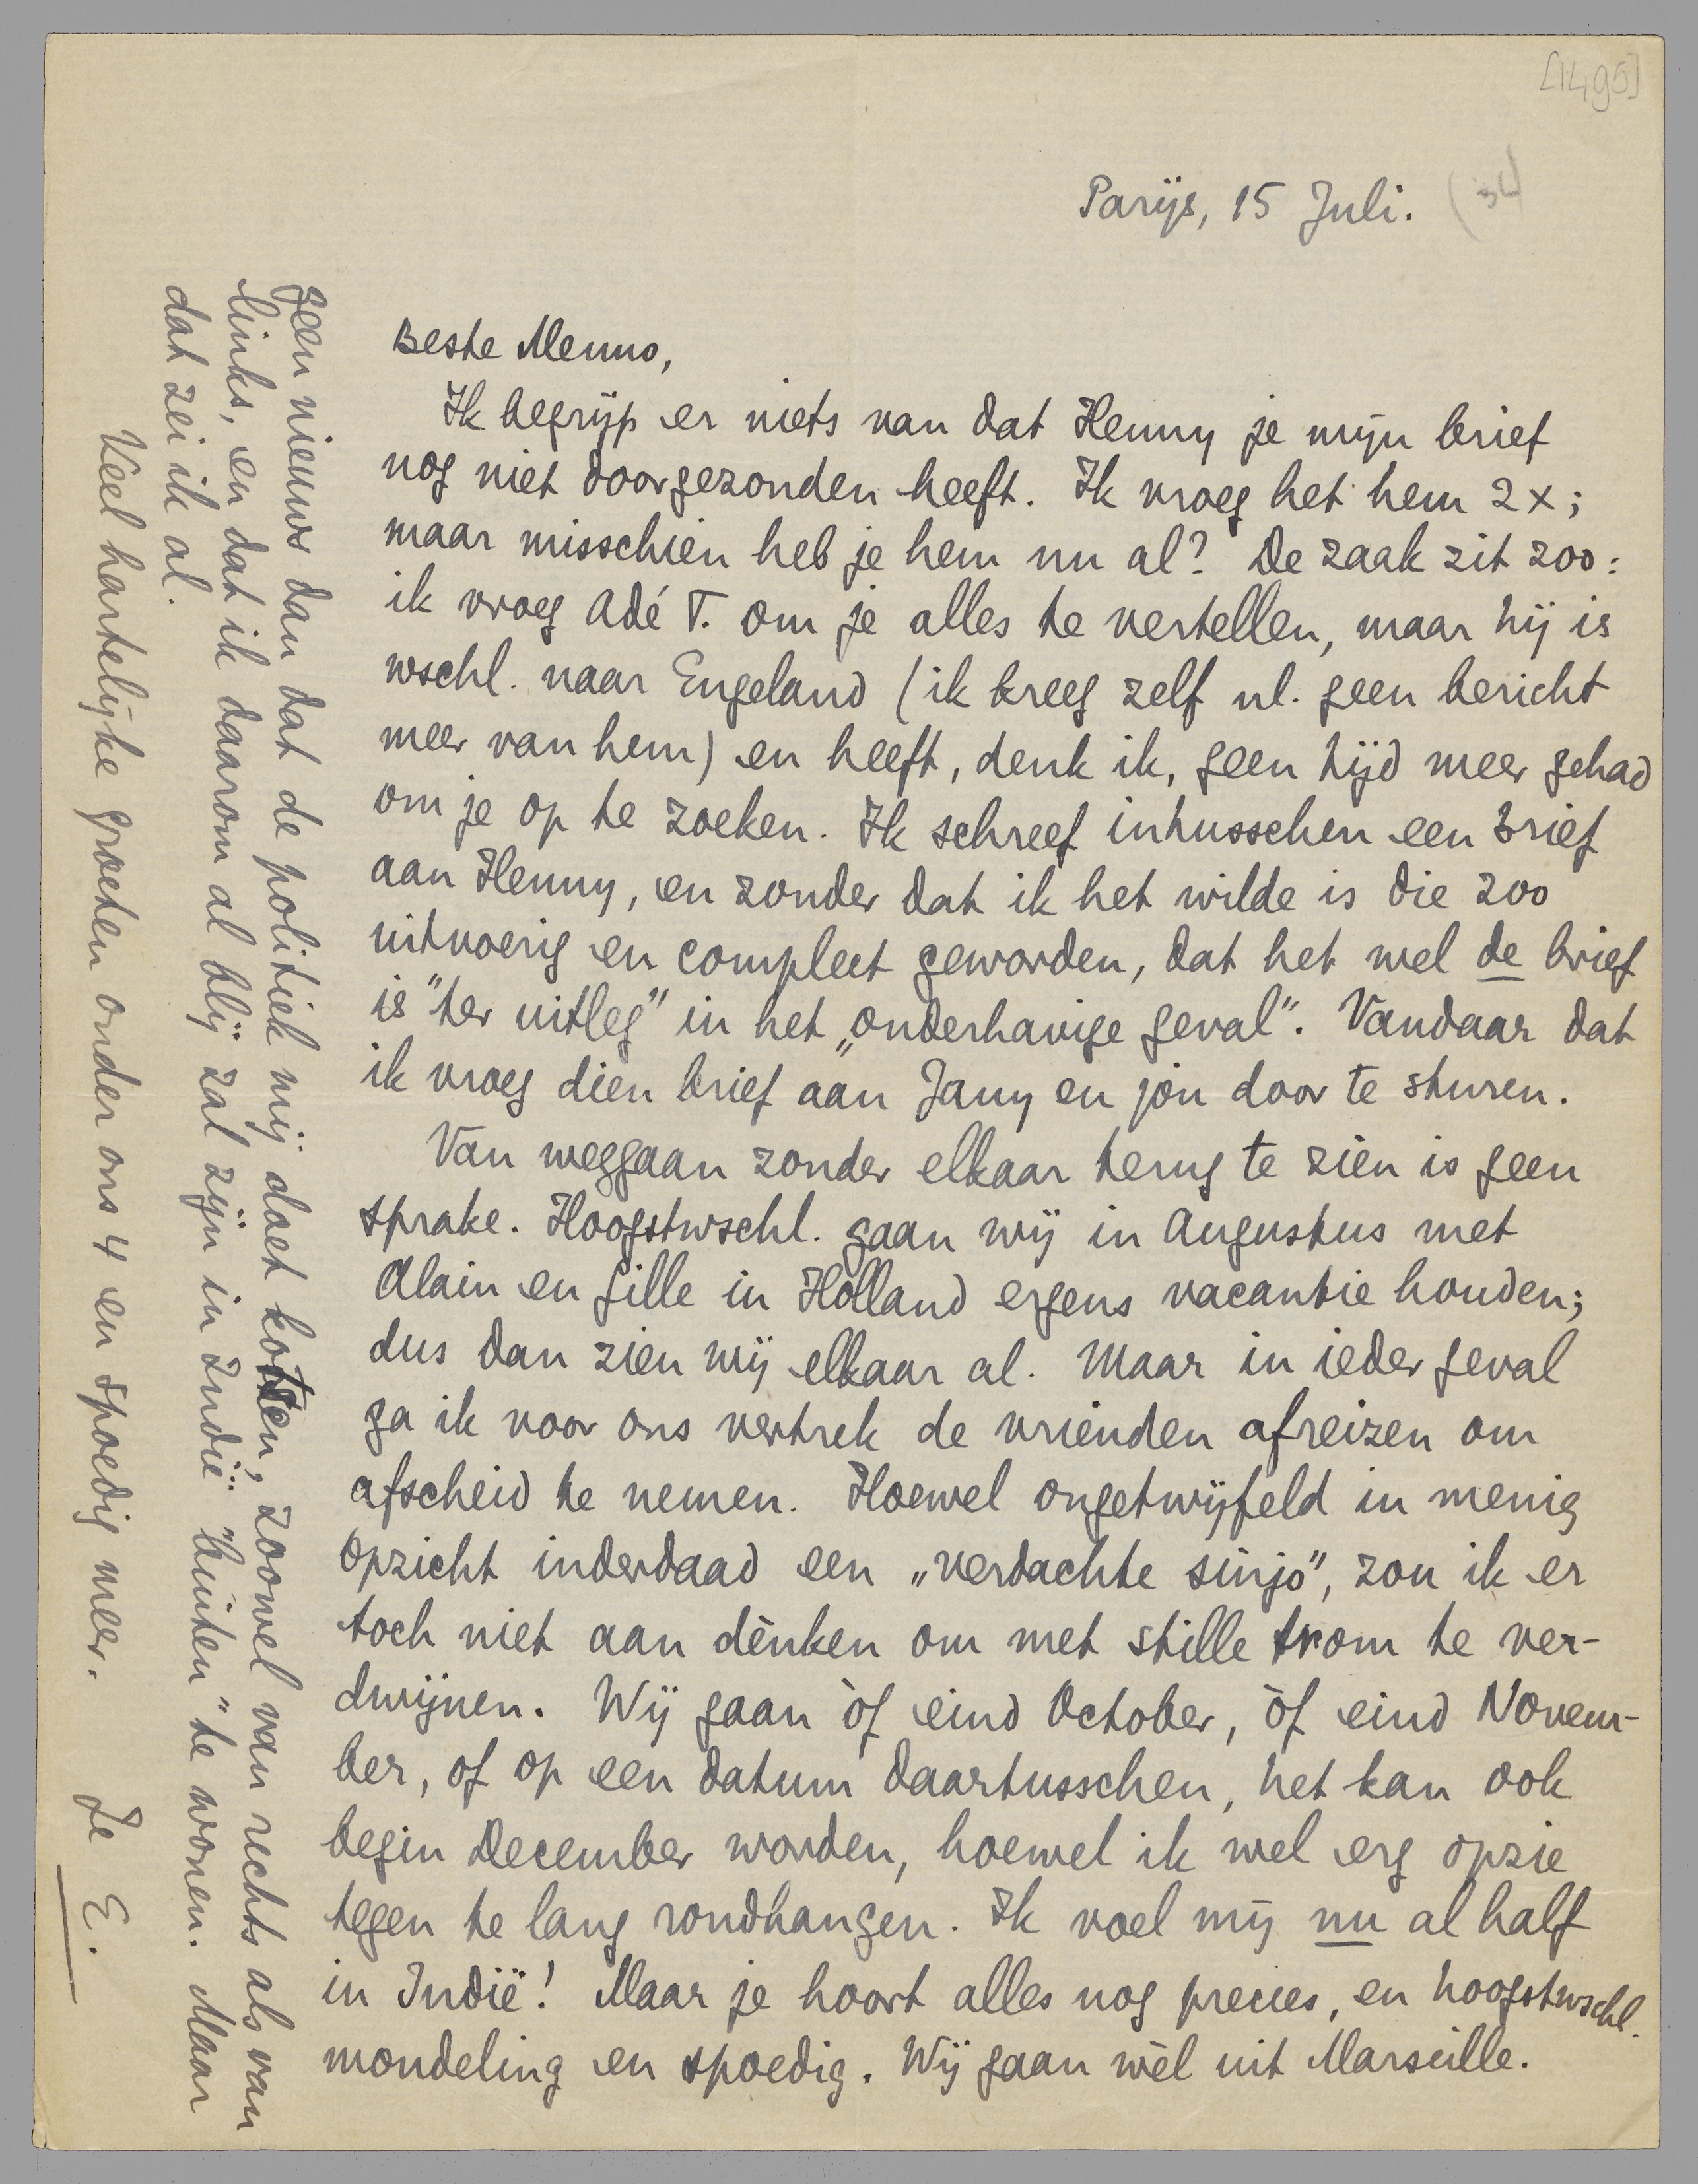 [1495]
Parijs, 15 Juli. (36)
Beste Menno,
Ik begrijp er niets van dat Henny je mijn brief
nog niet doorgezonden heeft. Ik vroeg het hem 2x;
maar misschien heb je hem nu al? De zaak zit zoo:
ik vroeg Adé T. om je alles te vertellen, maar hij is
wschl. naar Engeland (ik kreeg zelf nl. geen bericht
meer van hem) en heeft, denk ik, geen tijd meer gehad
om je op te zoeken. Ik schreef intusschen een brief
aan Henny, en zonder dat ik het wilde is die zoo
uitvoerig en compleet geworden, dat het wel de brief
is "ter uitleg" in het „onderhavige geval". Vandaar dat
ik vroeg dien brief aan Jany en jòu door te sturen.
Van weggaan zonder elkaar terug te zien is geen
sprake. Hoogstwschl. gaan wij in Augustus met
Alain en Gille in Holland ergens vacantie houden;
dus dan zien wij elkaar al. Maar in ieder geval
ga ik voor ons vertrek de vrienden afreizen om
afscheid te nemen. Hoewel ongetwijfeld in menig
opzicht inderdaad een „verdachte sinjo", zou ik er
toch niet aan dènken om met stille trom te ver-
dwijnen. Wij gaan òf eind October, òf eind Novem-
ber, of op een datum daartusschen, het kan ook
begin December worden, hoewel ik wel erg opzie
tegen te lang rondhangen. Ik voel mij nu al half
in Indië! Maar je hoort alles nog precies, en hoogstwschl.
mondeling en spoedig. Wij gaan wèl uit Marseille.
Geen nieuws dan dat de politiek mij doet kotsen, zoowel van rechts als van
links, en dat ik daarom al blij zal zijn in Indië "buiten" te wonen. Maar
dat zei ik al.
Veel hartelijke groeten onder ons 4 en spoedig meer.
Je E.